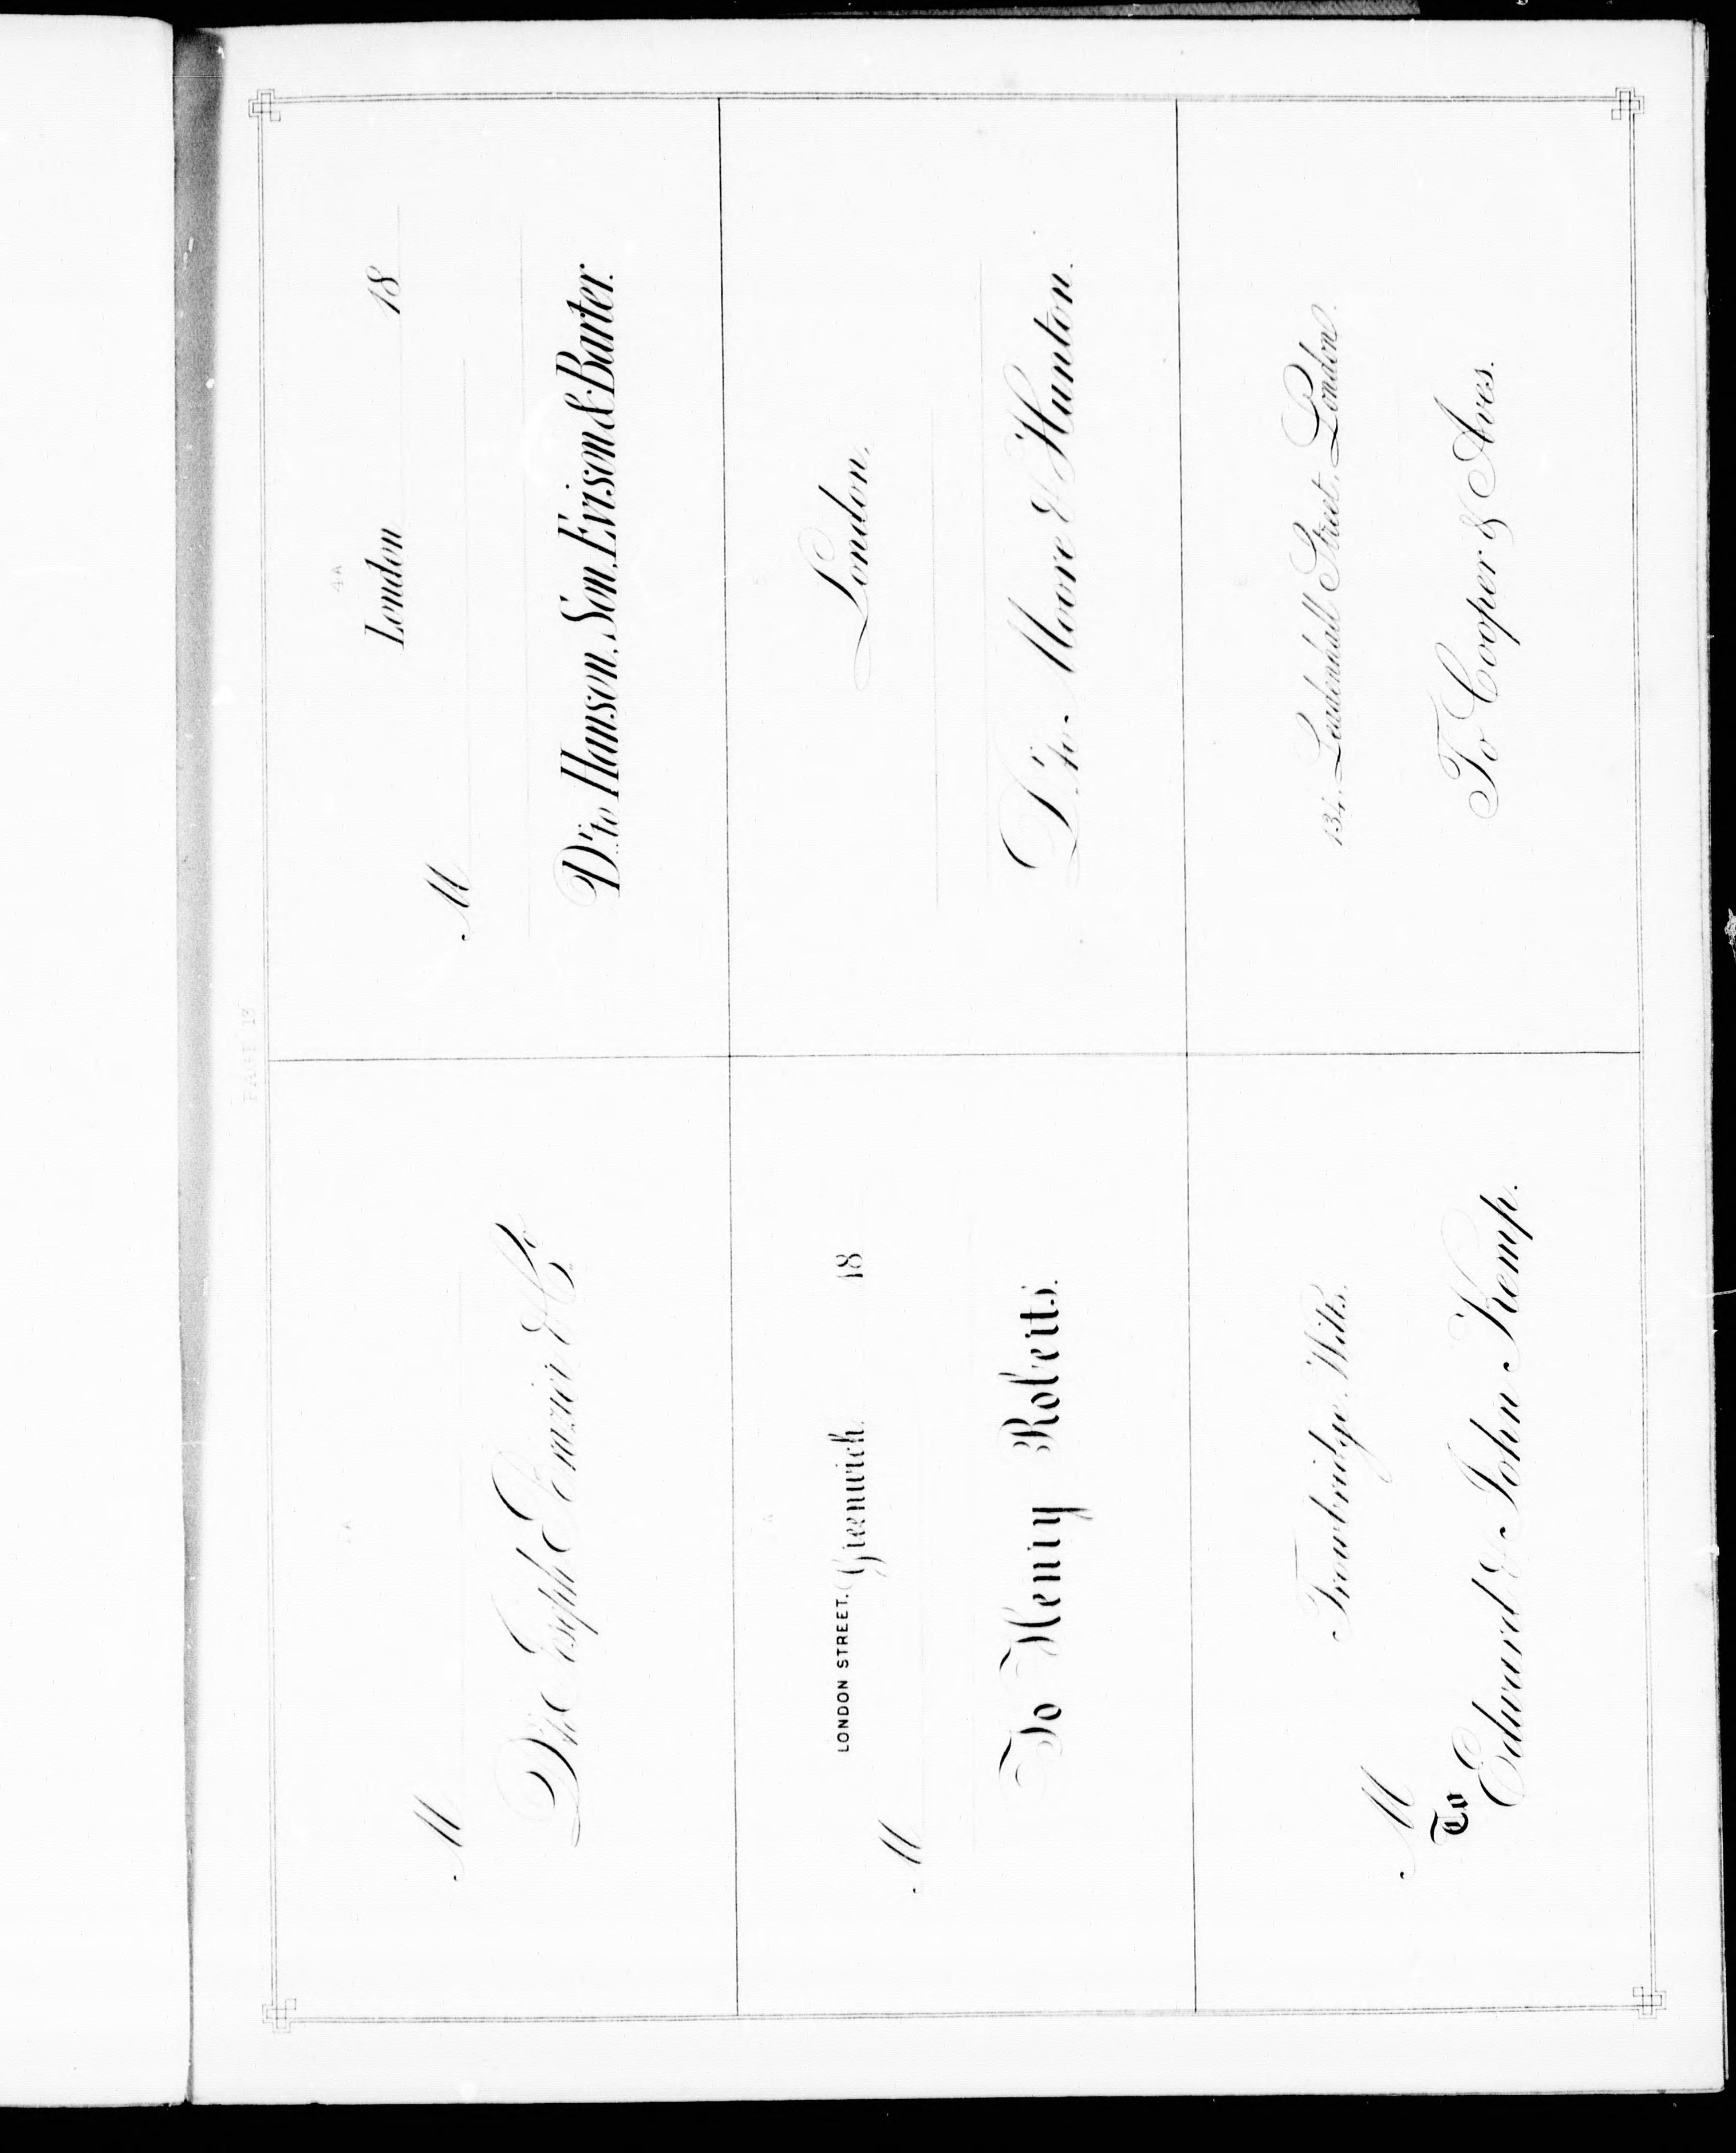 PAGE 13
M
Dr. to Joseph Penizier & Co.
4A
London 18
M
Dr. to Hanson, Son, Evison & Barter.
A
LONDON STREET, Greenwich. 18
M
To Henry Roberts.
London,
Dr. to Moore & Hunton.
Trowbridge, Wilts.
M
To
Edward & John Kemp.
134, Leadenhall Street, London.
To Cooper & Aves.